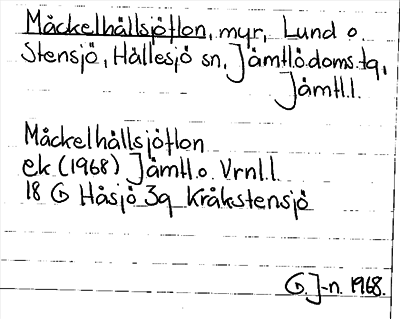 Måckelhållsjötlon, myr, Lund o
Stensjö, Hällesjö sn, Jämtl.ö.doms.tg,
Jämtl.l.
Måckelhållsjötlon
ek (1968) Jämtl.o. Vrnl.l.
18 G Håsjö 3g Kråkstensjö
G. J-n. 1968.